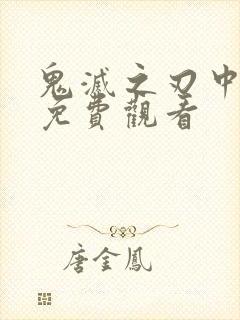 鬼滅之刃中
免費觀看
唐金鳳